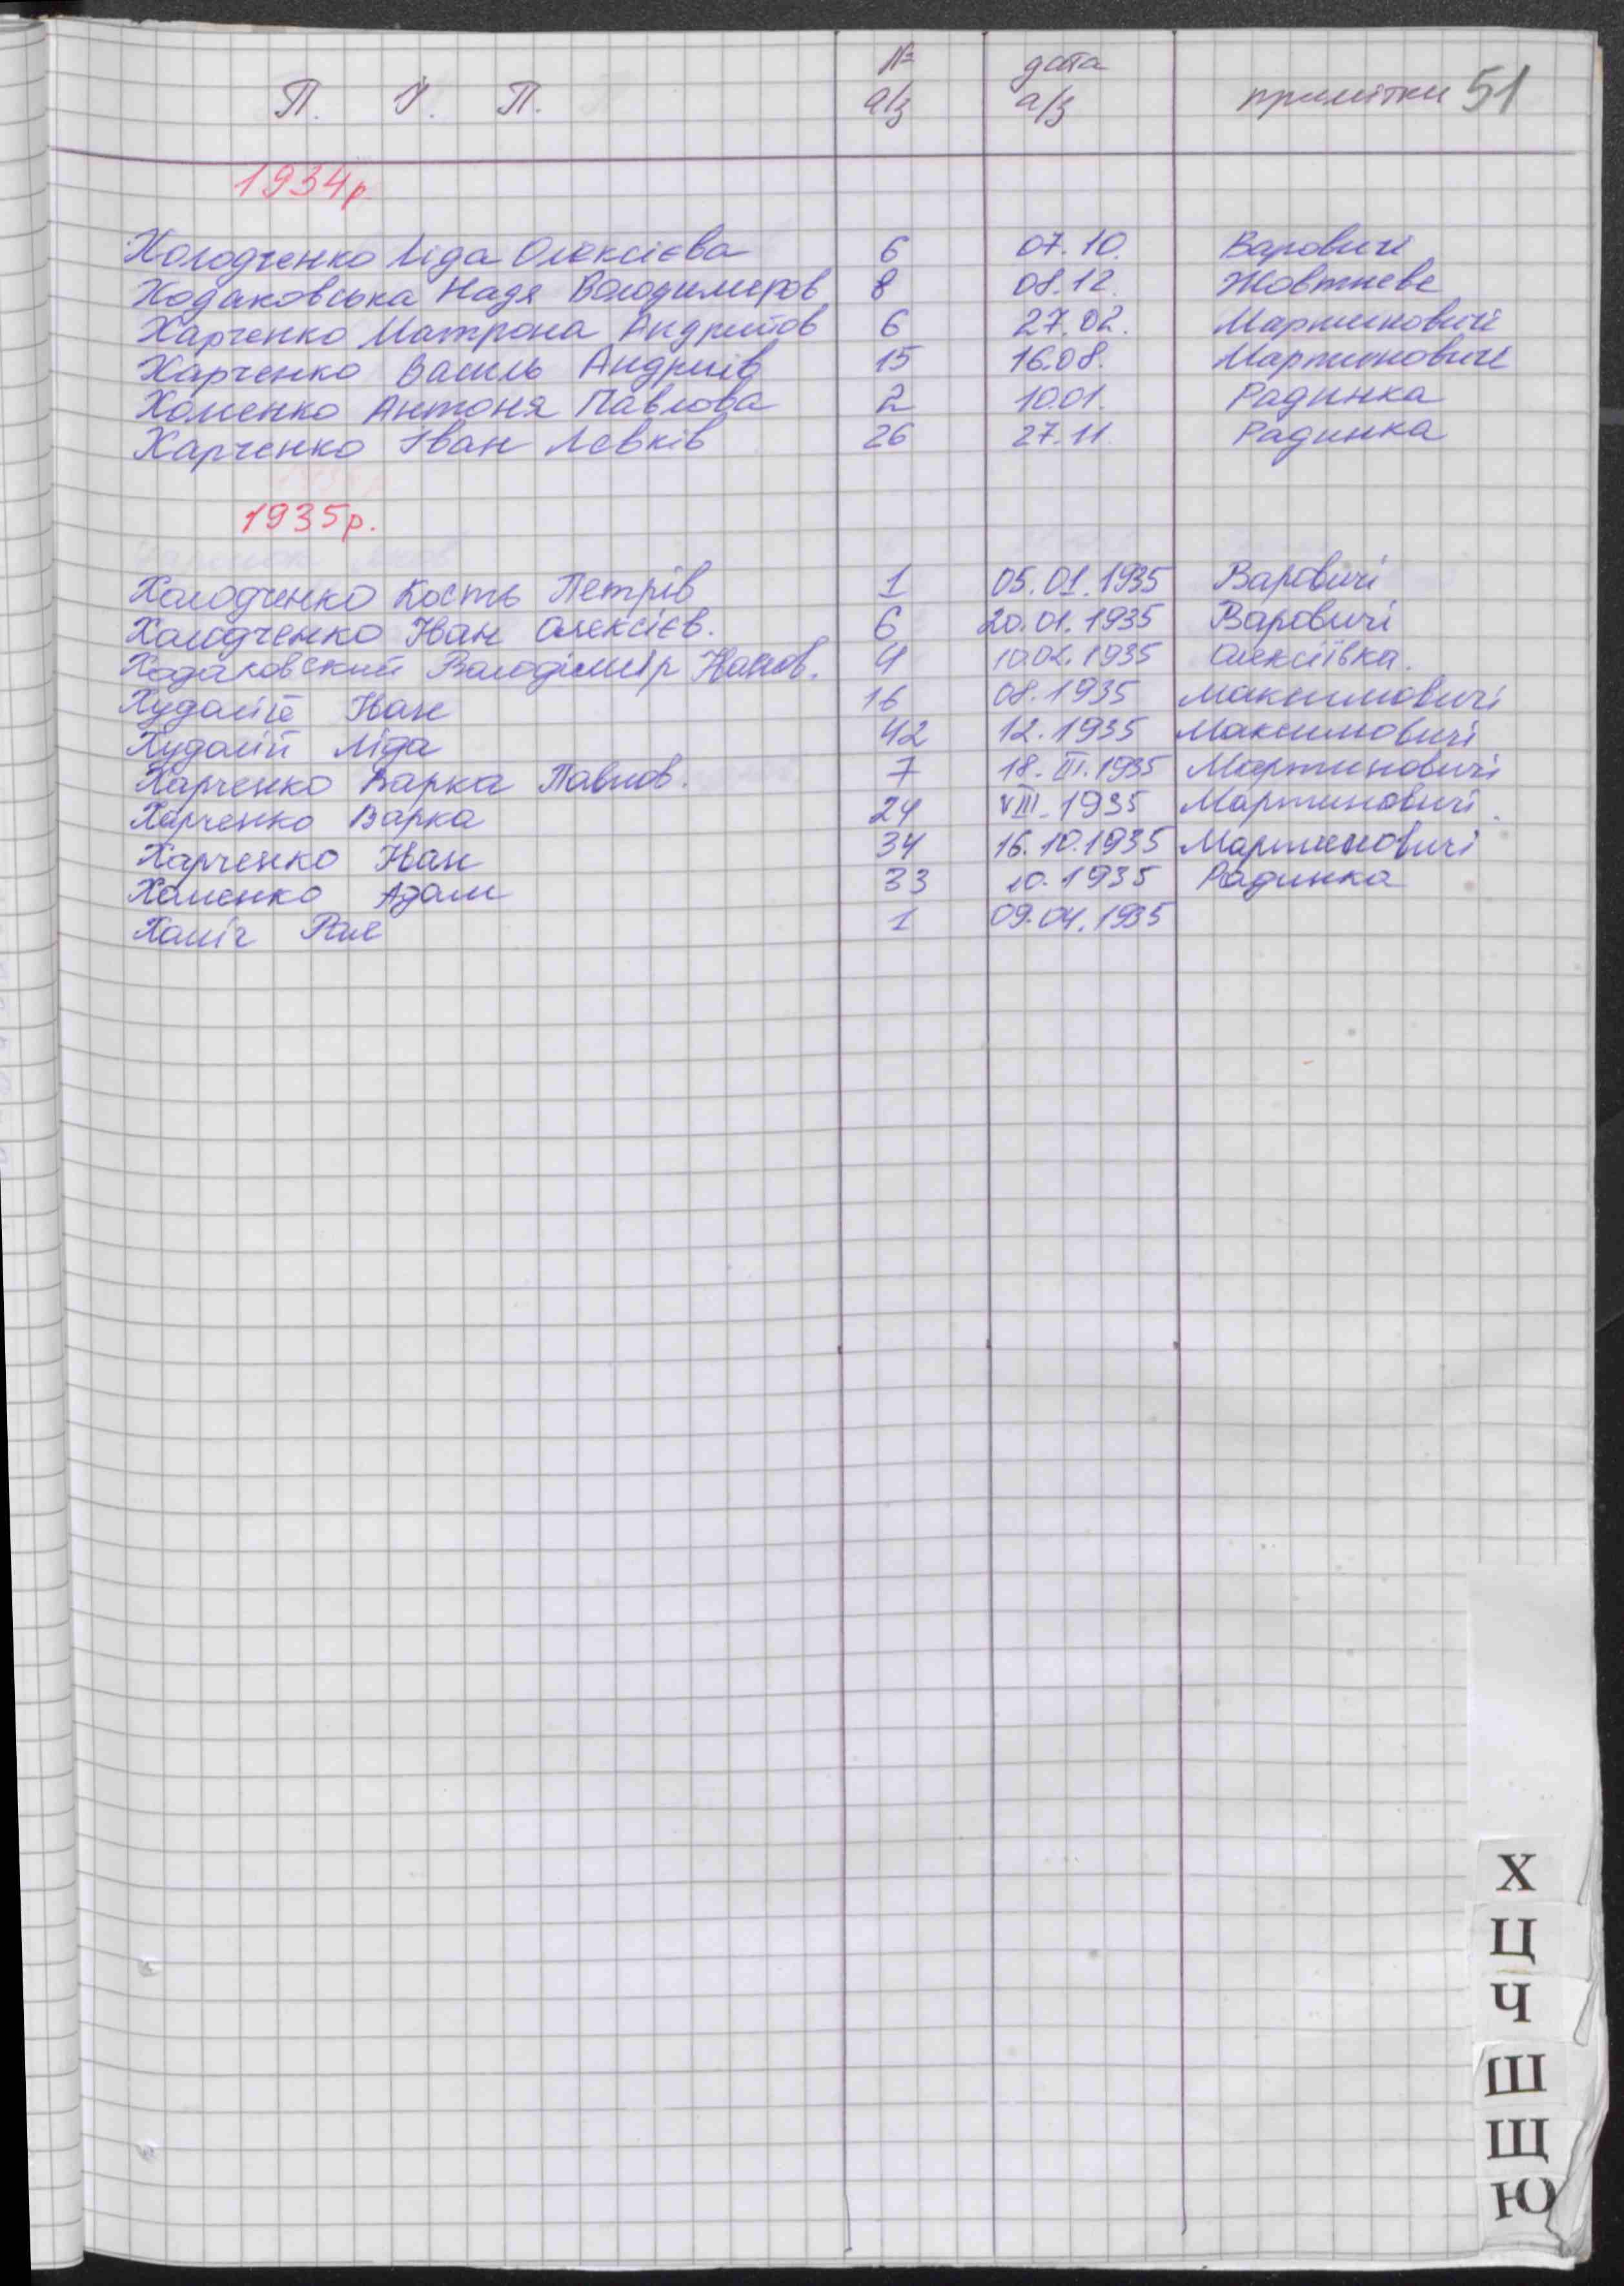 П. І. П. № а/з дата а/з примітки 51
1934р.
Холодченко Ліда Олексієва 6 07.10. Варовичі
Ходаковська Надя Володимеров 8 08.12. Жовтневе
Харченко Матрона Андрийов 6 27.02. Мартиновичі
Харченко Василь Андриїв 15 16.08. Мартиновичі
Хоменко Антоня Павлова 2 10.01. Радинка
Харченко Іван Левків 26 27.11. Радинка
1935р.
Холодченко Кость Петрів 1 05.01.1935 Варовичі
Холодченко Іван Олексієв. 6 20.01.1935 Варовичі
Ходаковский Володімір 4 10.02.1935 Олексіївка.
Худолій Іван 16 08.1935 Максимовичі
Худолій Ліда 42 12.1935 Максимовичі
Харченко Варка Павлов. 7 18.III.1935 Мартиновичі
Харченко Варка 24 VIII.1935 Мартиновичі.
Харченко Іван 34 16.10.1935 Мартиновичі
Хоменко Адам 33 10.1935 Радинка
1 09.04.1935
Х
Ц
Ч
Ш
Щ
Ю